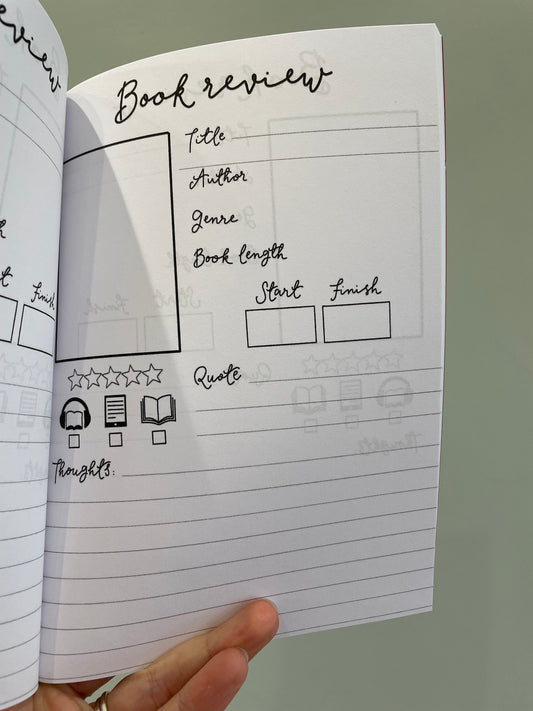 eview
Finish
Book review
Title
Author
Genre
Book length
Start Finish
Quote
Thoughts: